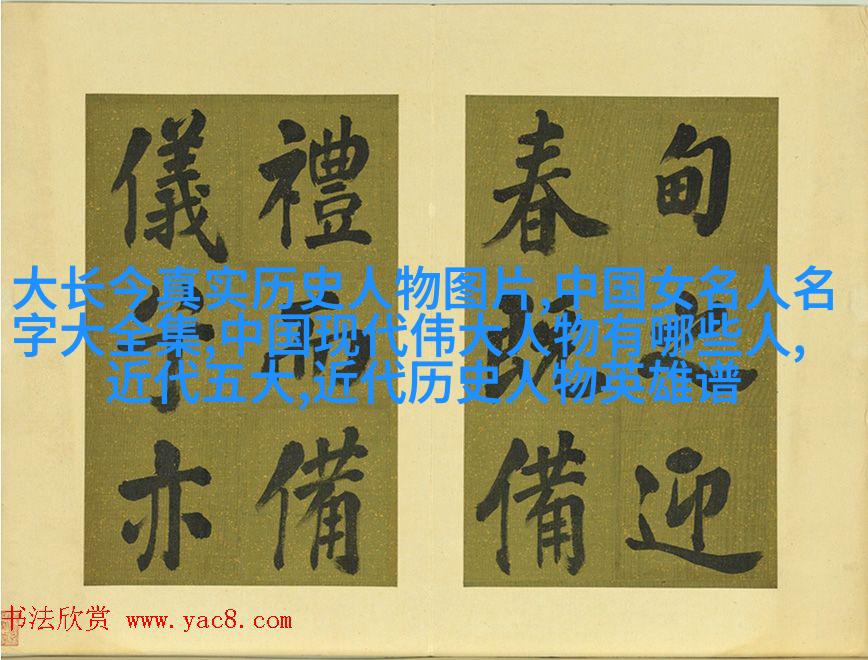 大长今真实历史人物图片,中国女名人名
字大全集,中国现代伟大人物有哪些人,
近代五大,近代历史人物英雄谱
甸迎
春既備
禮備
儀亦
书法欣赏 www.yac8.com